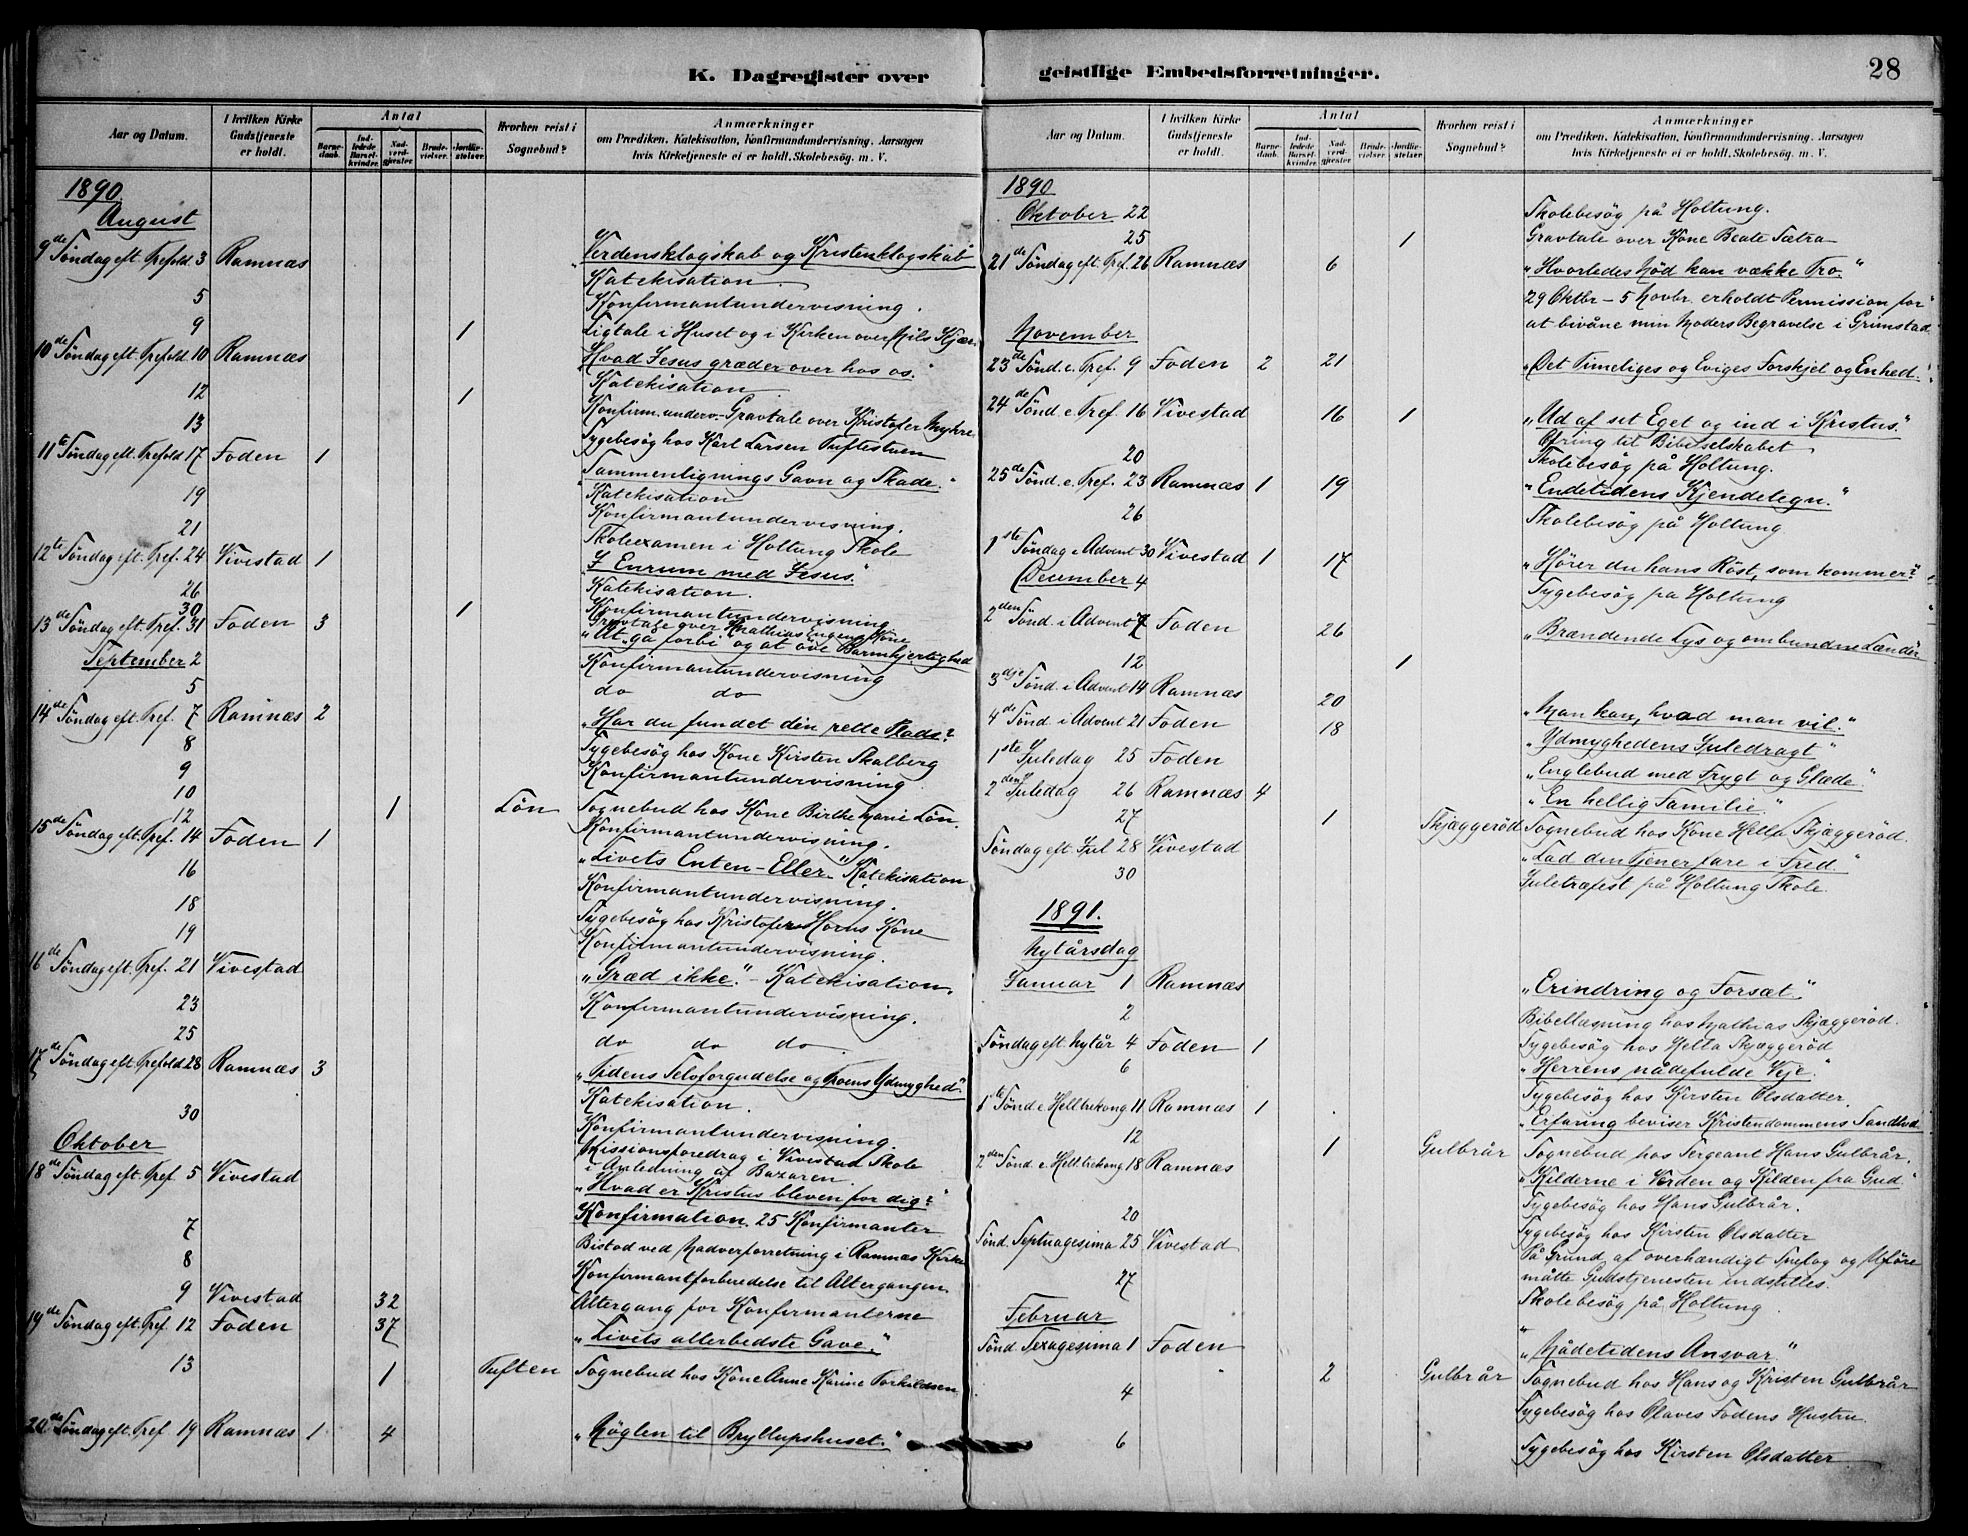 K. Dagregister over
Aar og Datum.
I hvilken Kirke Gudstjeneste er holdt.
Antal
Barnedaab.
Indledede Barselkvinder.
Nadverdgjester
Brudevielser.
Jordfæstelser.
Hvorhen reist i Sognebud?
Anmærkninger
om Prædiken, Katekisation, Konfirmandundervisning, Aarsagen
hvis Kirketjeneste ei er holdt, Skolebesög m. V.
1890
August
9de Söndag eft. Trefold 3 Ramnæs „Verdensklogskab og Kristenklogskab"
Katekisation.
5 Konfirmantundervisning.
9 1 Ligtale i Huset og i Kirken over Nils Kjær.
10de Söndag eft. Trefold 10 Ramnæs „Hvad Jesus græder over hos os."
Katekisation
12 1 Konfirm. underv. - Gravtale over Kristofer Myhre
13 Sygebesög hos Karl Larsen Tuftestuen
11te Söndag eft. Trefold 17 Foden 1 „Sammenlignings Gavn og Skade."
Katekisation
19 Konfirmantundervisning.
21 Skoleexamen i Holtung Skole
12te Söndag eft. Tref. 24 Vivestad 1 „I Enrum med Jesus."
Katekisation.
26 Konfirmantundervisning
30 1 Gravtale over Mathias Engens Kone
13de Söndag eft. Tref. 31 Foden 3 „At gå forbi og at öve Barmhjertighed
September 2 Konfirmantundervisning
5 do do
14de Söndag eft. Tref. 7 Ramnæs 2 „Har du fundet den rette Plads?
8 Sygebesög hos Kone Kirsten Skalberg
9 Konfirmantundervisning
10 1 Lön Sognebud hos Kone Birthe Marie Lön.
12 Konfirmantundervisning.
15de Söndag eft. Tref. 14 Foden 1 „Livets Enten-Eller" Katekisation
16 Konfirmantundervisning.
18 Sygebesög hos Kristofer Horns Kone
19 Konfirmantundervisning.
16de Söndag eft. Tref. 21 Vivestad „Græd ikke". - Katekisation.
23 Konfirmantundervisning.
25 do do do
17de Söndag eft. Trefold 28 Ramnæs 3 „Tidens Selvforgudelse og Troens Ydmyghed".
Katekisation.
30 Konfirmantundervisning
Oktober Missionsforedrag i Vivestad Skole
i Anledning af Bazaren.
18de Söndag eft. Tref 5 Vivestad „Hvad er Kristus bleven for dig?"
Konfirmation. 25 Konfirmanter
7 Bistod ved Nadverforretning i Ramnæs Kirke
8 Konfirmantforberedelse til Altergangen
9 Vivestad 32 Altergang for Konfirmanterne
19de Söndag eft. Tref. 12 Foden 37 „Livets allerbedste Gave."
13 1 Tuften Sognebud hos Kone Anne Karine Torkildsen
20de Söndag eft. Tref 19 Ramnæs 1 4 „Nöglen til Bryllupshuset."
geistlige Embedsforretninger.
28
Aar og Datum.
I hvilken Kirke Gudstjeneste er holdt.
Antal
Barnedaab.
Indledede Barselkvinder.
Nadverdgjester
Brudevielser.
Jordfæstelser
Hvorhen reist i Sognebud?
Anmærkninger
om Prædiken, Katekisation, Konfirmandundervisning, Aarsagen
hvis Kirketjeneste ei er holdt, Skolebesög m. V.
1890
Oktober 22 Skolebesög på Holtung.
25 1 Gravtale over Kone Beate Sætra
21de Söndag eft. Tref. 26 Ramnæs 6 „Hvorledes Nöd kan vække Tro."
29 Oktbr - 5 Novbr. erholdt Permission for
November at bivåne min Moders Begravelse i Grimstad
23de Sönd. e. Tref. 9 Foden 2 21 „Det Timeliges og Eviges Forskjel og Enhed."
24de Sönd e. Tref. 16 Vivestad 16 1 „Ud af sit Eget og ind i Kristus."
Ofring til Bibelselskabet
20 Skolebesög på Holtung.
25de Sönd. e. Tref. 23 Ramnæs 1 19 „Endetidens Kjendetegn."
26 Skolebesög på Holtung
1ste Söndag i Advent 30 Vivestad 1 17 „Hörer du hans Röst, som kommer?
December 4 Sygebesög på Holtung
2den Sönd. i Advent 7 Foden 26 „Brændende Lys og ombundne Lænder
12 1
3dje Sönd. i Advent 14 Ramnæs 20 „Man kan, hvad man vil."
4de Sönd i Advent 21 Foden 18 „Ydmyghedens Juledragt"
1ste Juledag 25 Foden „Englebud med Frygt og Glæde."
2den Juledag 26 Ramnæs 4 „En hellig Familie"
27 1 Skjæggeröd Sognebud hos Kone Hella Skjæggeröd.
Söndag eft. Jul 28 Vivestad „Lad din Tjener fare i Fred."
30 Juletræfest på Holtung Skole.
1891.
Nytårsdag
Januar 1 Ramnæs „Erindring og Forsæt."
2 Bibellæsning hos Mathias Skjæggeröd.
Sygebesög hos Hella Skjæggeröd
Söndag eft. Nytår 4 Foden 1 „Herrens nådefulde Veje."
6 Sygebesög hos Kirsten Olsdatter.
1ste Sönd e Helltrekong 11 Ramnæs 1 „Erfaring beviser Kristendommens Sandhed.
12 1 Gulbrår Sognebud hos Sergeant Hans Gulbrår.
2den Sönd. e. Helltrekong 18 Ramnæs „Kilderne i Verden og Kilden fra Gud."
Sygebesög hos Hans Gulbrår.
20 Sygebesög hos Kirsten Olsdatter
Sönd. Septuagesima 25 Vivestad På Grund af overhændigt Snefog og Uföre
måtte Gudstjenesten indstilles.
27 Skolebesög på Holtung
Februar
Sönd. Sexagesima 1 Foden „Nådetidens Ansvar"
2 Gulbrår Sognebud hos Hans og Kristen Gulbrår
4 Sygebesög hos Olaves Fodens Hustru
6 Sygebesög hos Kirsten Olsdatter